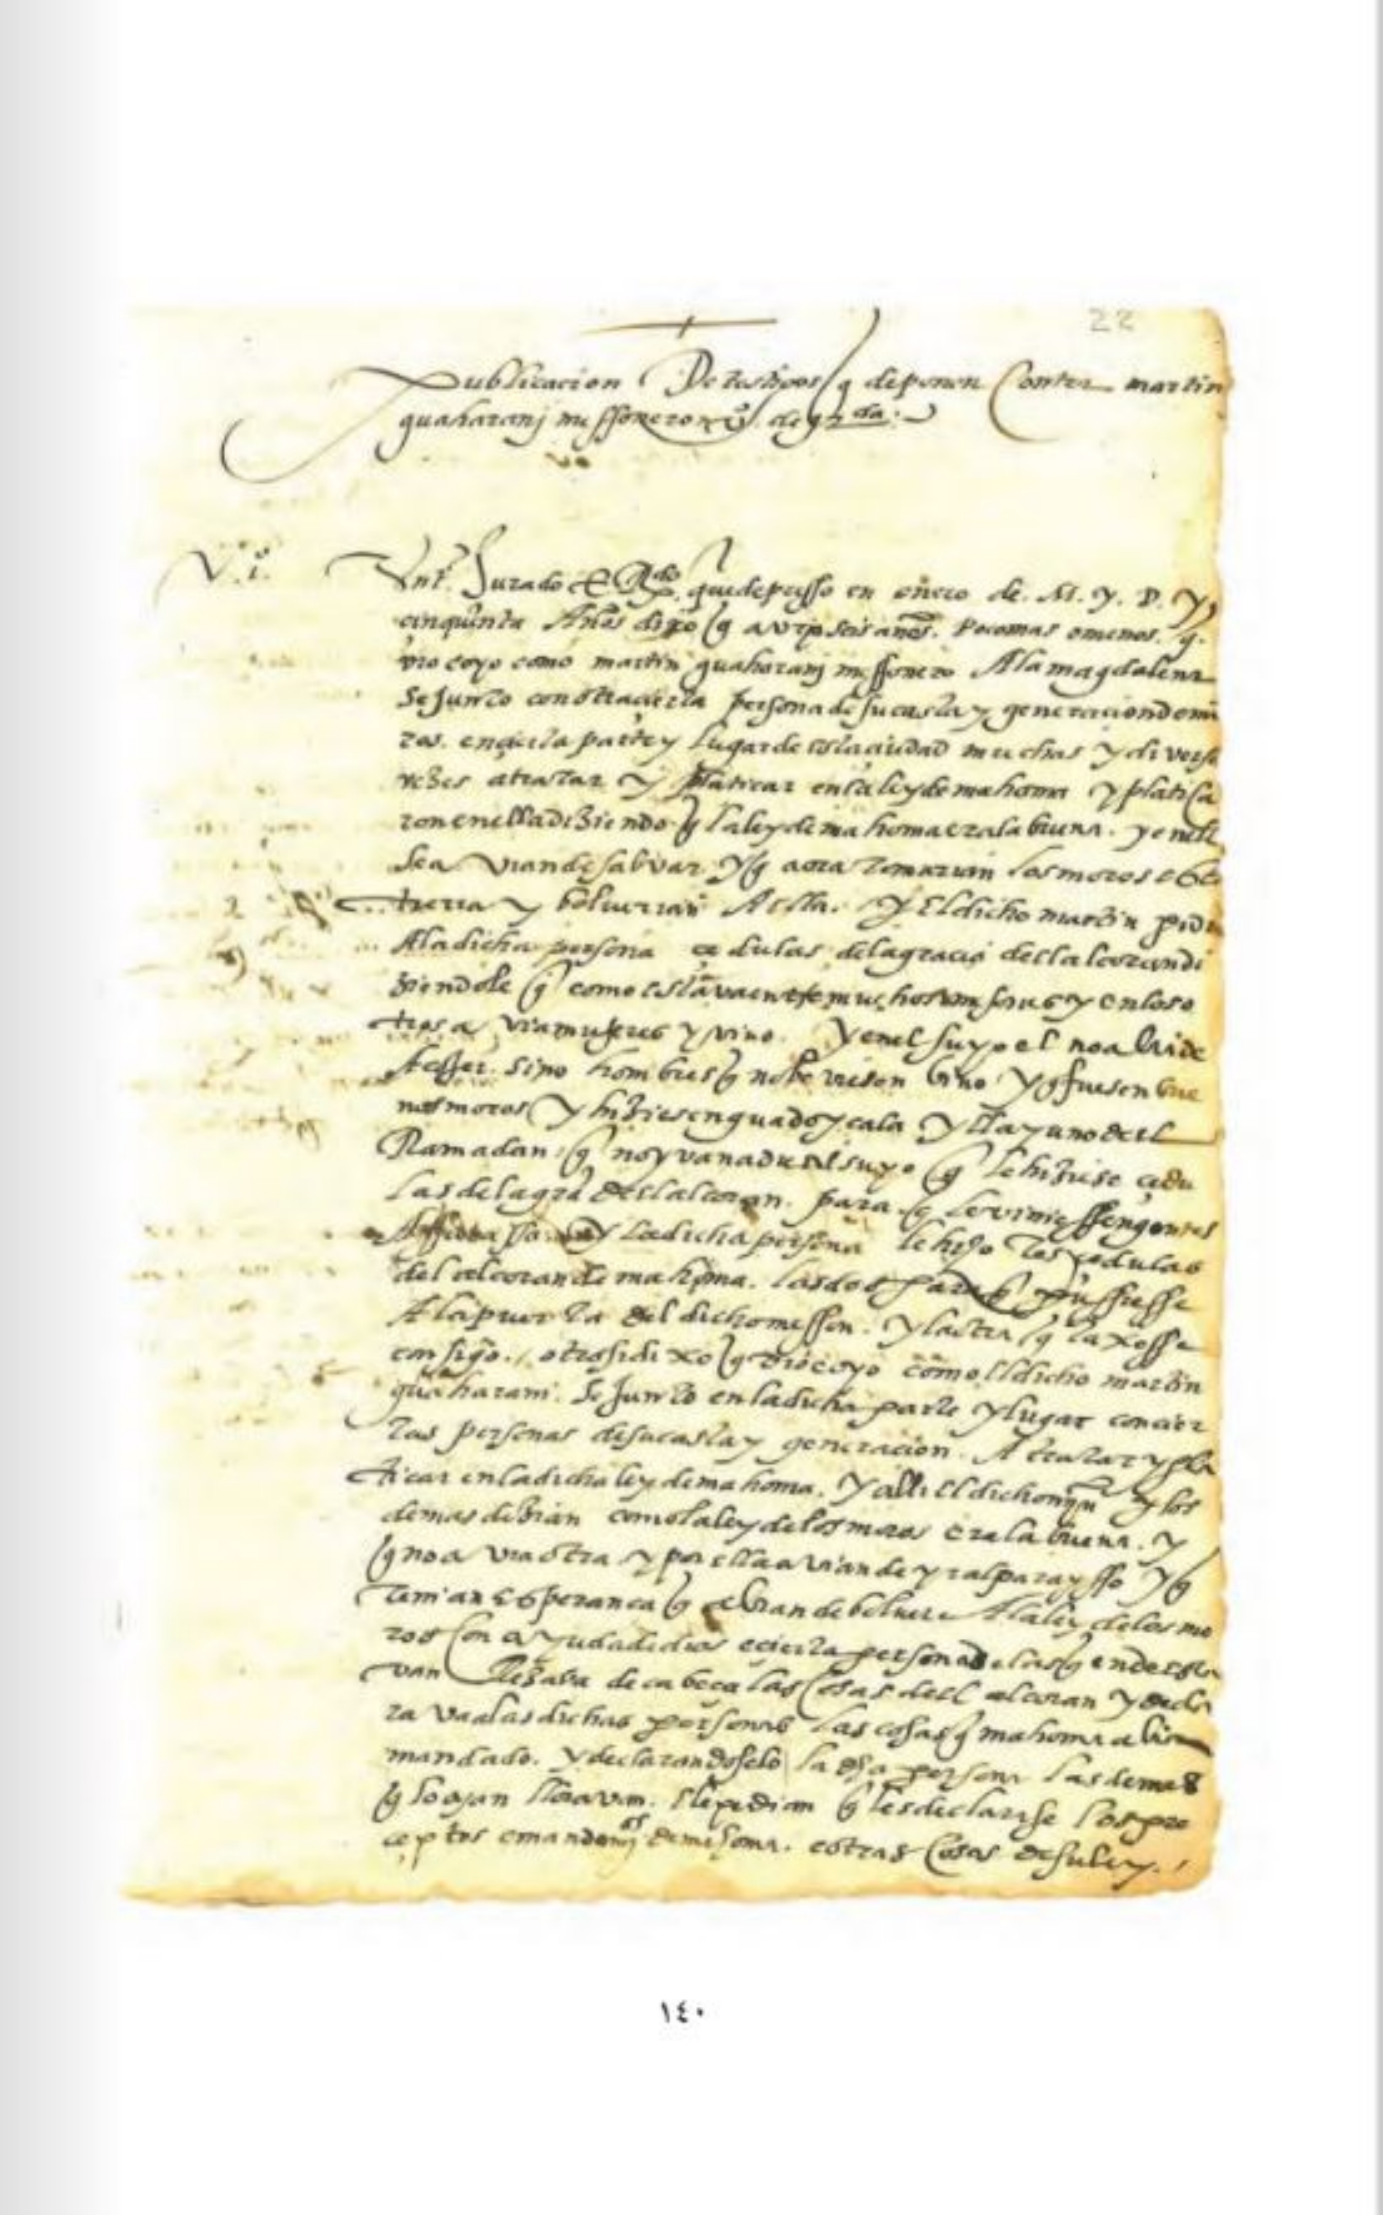 22
publicacion De testigos q deponen Contra martin
guaharanj messonero vº de grda.
V.i.
Un tº Jurado E Rdo que depusso en enero de. M. y. D. y
cinquenta Años dixo q avra seis años. poco mas o menos. q.
vio e oyo como martin guaharanj messonero A la magdalena
se junto con otra cierta persona de su casta y generacion de mo
ros. en cierta parte y lugar de esta ciudad muchas y diversas
vezes a tratar y platicar en la ley de mahoma y platica
ron en ella diziendo q la ley de mahoma era la buena. y en ella
se avian de salvar y q aora tomarian los moros esta
tierra y bolverian A ella. y El dicho martin pidio
A la dicha persona cedulas de la gracia del alcoran di
ziendole q como estava entre muchos mesones y en los o
tros avia mujeres y vino. y en el suyo el no avia de
tener sino hombres q no beviesen vino y q fuesen bue
nos moros y hiziesen guado y cala y el ayuno del
Ramadan q no yvan a el suyo q le hiziese cedu
las de la gra del alcoran. para q le viniessen gentes
y la dicha persona le hizo tres cedulas
del alcoran de mahoma. las dos para q pussiesse
A la puerta del dicho messon. y la otra q la
consigo. otrosi dixo q vio e oyo como el dicho martin
guaharani. se junto en la dicha parte y lugar con cier
tas personas de su casta y generacion. A tratar y pla
ticar en la dicha ley de mahoma. y alli el dicho mjn y los
demas dezian como la ley de los moros era la buena. y
q no avia otra y por ella avian de yr al paraysso y q
tenian esperanca q avian de bolver A la ley de los mo
ros con ayuda de dios e cierta persona de las q ende esta
van Rezava de cabeca las cosas del alcoran y decla
rava a las dichas personas las cosas q mahoma avia
mandado. y declarandoselo la dha persona las demas
q lo oyan lloravan. e le pedian q les declarase los pre
ceptos e mandamjos de mahoma. e otras cosas de su ley.
١٤٠